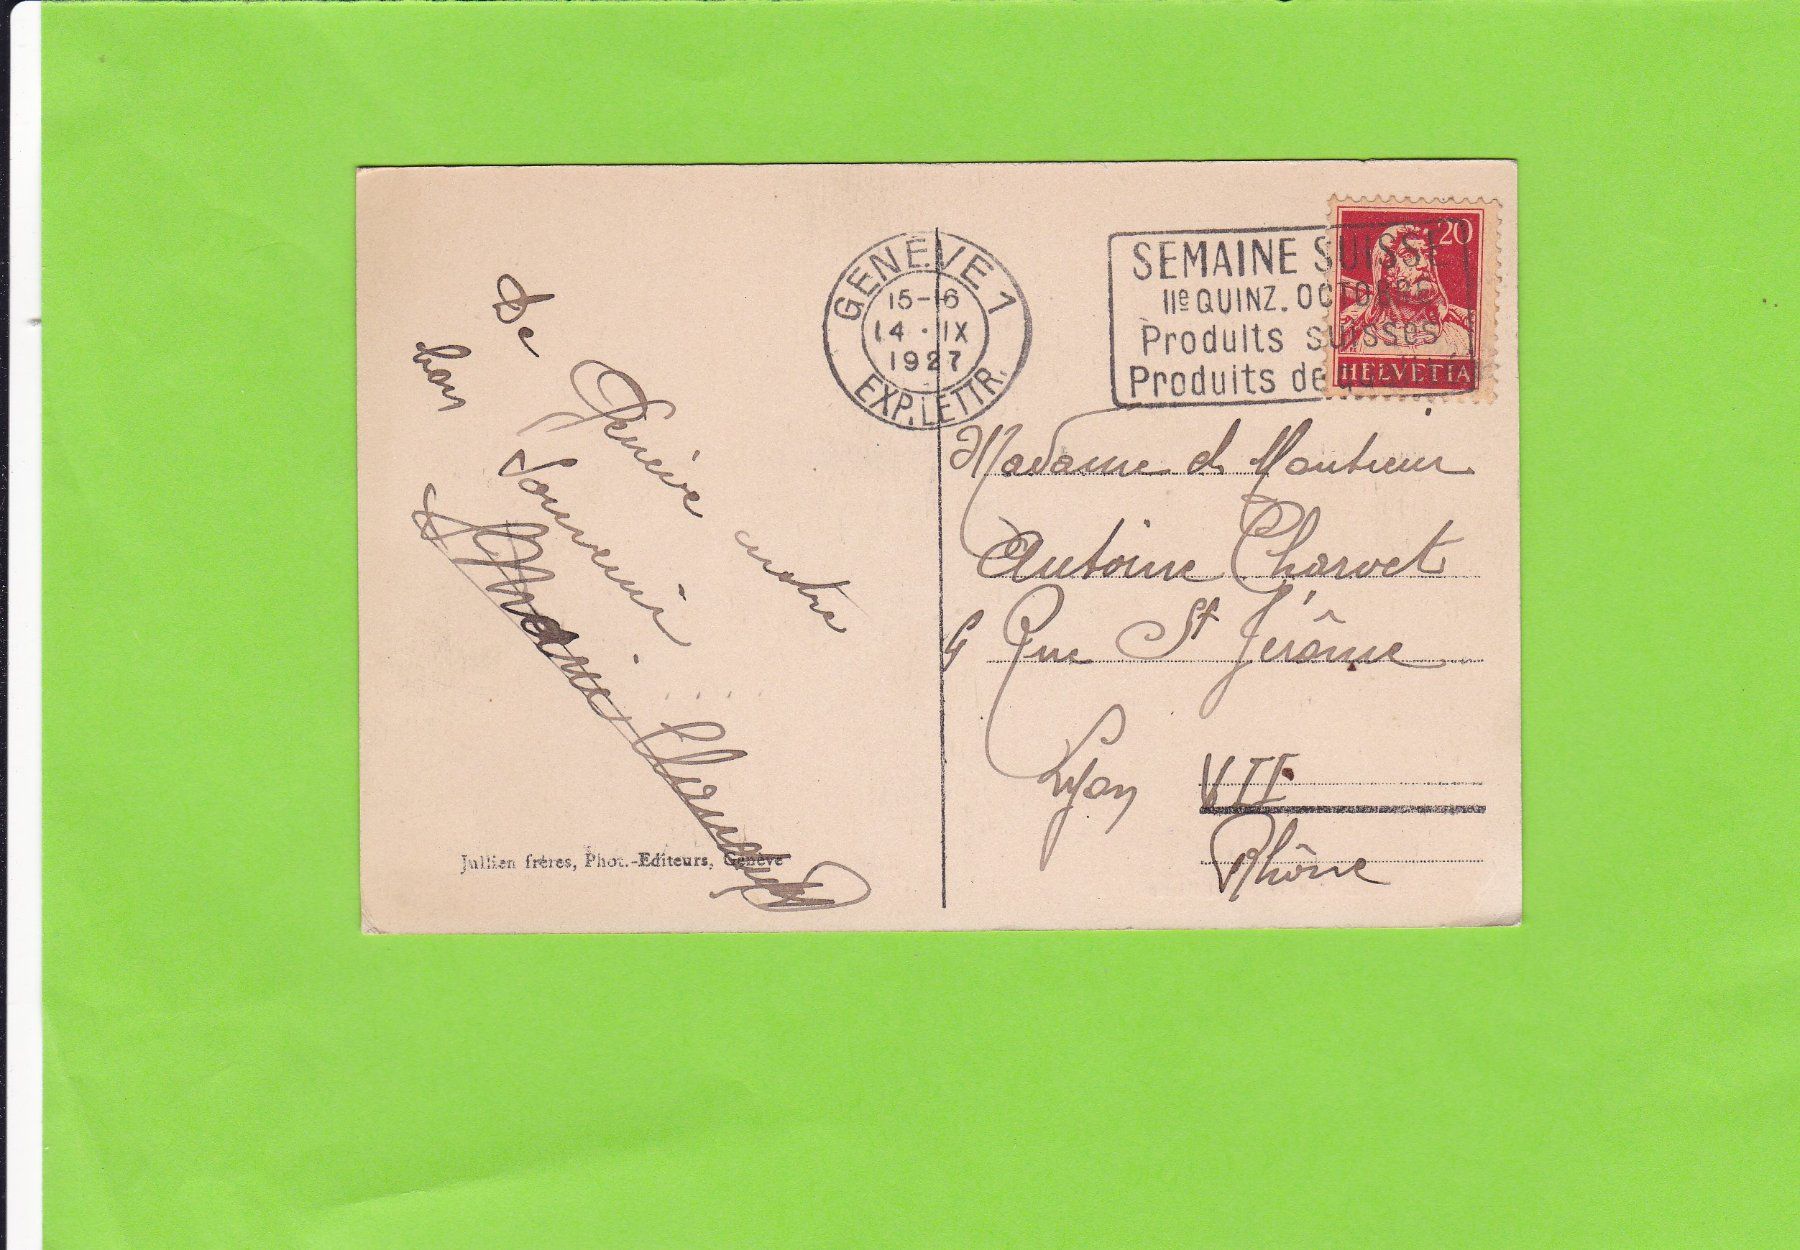 De Genève notre
bon Souvenir
Jullien frères, Phot.-Editeurs, Genève
GENÈVE 1
15-16
14·IX
1927
EXP. LETTR.
SEMAINE SUISSE
IIe QUINZ. OCTOBRE
Produits suisses
Produits de qualité
20
HELVETIA
Madame et Monsieur
Antoine Charvet
9 Rue St Jérôme
Lyon VII
Rhône